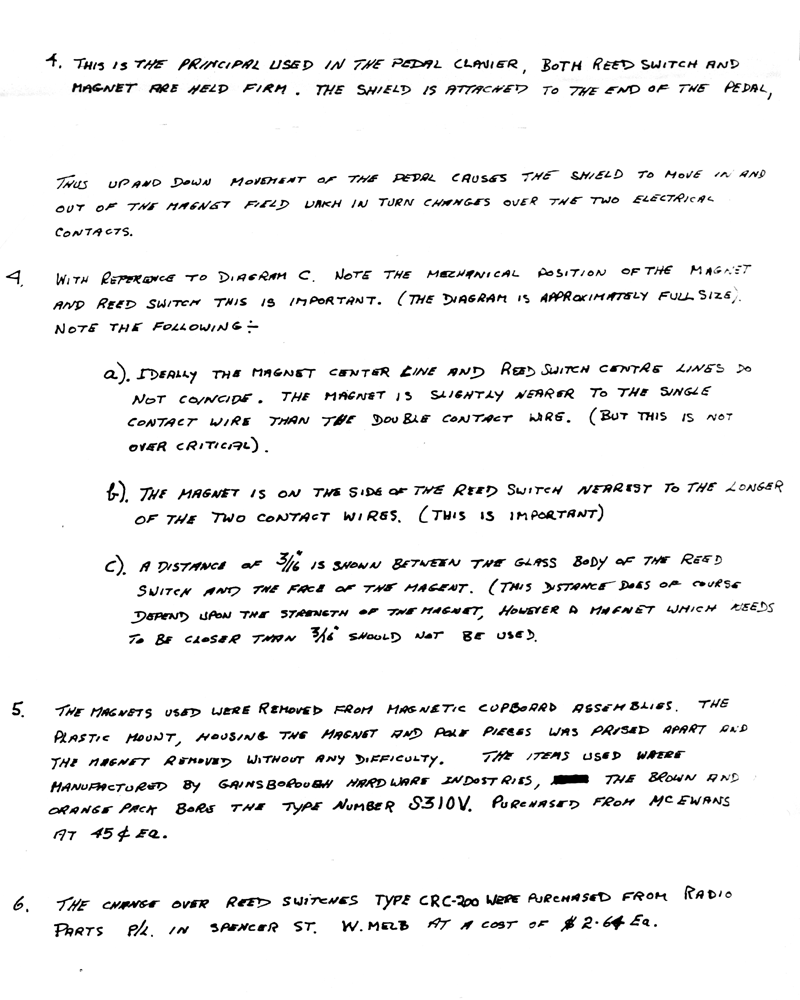 4. THIS IS THE PRINCIPAL USED IN THE PEDAL CLAVIER, BOTH REED SWITCH AND
MAGNET ARE HELD FIRM. THE SHIELD IS ATTACHED TO THE END OF THE PEDAL,
THUS UP AND DOWN MOVEMENT OF THE PEDAL CAUSES THE SHIELD TO MOVE IN AND
OUT OF THE MAGNET FIELD WHCH IN TURN CHANGES OVER THE TWO ELECTRICAL
CONTACTS.
4. WITH REFERENCE TO DIAGRAM C. NOTE THE MECHANICAL POSITION OF THE MAGNET
AND REED SWITCH THIS IS IMPORTANT. (THE DIAGRAM IS APPROXIMATELY FULL SIZE).
NOTE THE FOLLOWING :-
a). IDEALLY THE MAGNET CENTER LINE AND REED SWITCH CENTRE LINES DO
NOT COINCIDE. THE MAGNET IS SLIGHTLY NEARER TO THE SINGLE
CONTACT WIRE THAN THE DOUBLE CONTACT WIRE. (BUT THIS IS NOT
OVER CRITICIAL).
b). THE MAGNET IS ON THE SIDE OF THE REED SWITCH NEAREST TO THE LONGER
OF THE TWO CONTACT WIRES. (THIS IS IMPORTANT)
c). A DISTANCE OF 3/16" IS SHOWN BETWEEN THE GLASS BODY OF THE REED
SWITCH AND THE FACE OF THE MAGENT. (THIS DISTANCE DOES OF COURSE
DEPEND UPON THE STRENGTH OF THE MAGNET, HOWEVER A MAGNET WHICH NEEDS
TO BE CLOSER THAN 3/16" SHOULD NOT BE USED.
5. THE MAGNETS USED WERE REMOVED FROM MAGNETIC CUPBOARD ASSEMBLIES. THE
PLASTIC MOUNT, HOUSING THE MAGNET AND POLE PIECES WAS PRISED APART AND
THE MAGNET REMOVED WITHOUT ANY DIFFICULTY. THE ITEMS USED WHERE
MANUFACTURED BY GAINSBOROUGH HARDWARE INDOSTRIES, THE BROWN AND
ORANGE PACK BORE THE TYPE NUMBER S310V. PURCHASED FROM MC EWANS
AT 45¢ EA.
6. THE CHANGE OVER REED SWITCHES TYPE CRC-200 WERE PURCHASED FROM RADIO
PARTS P/L. IN SPENCER ST. W. MELB AT A COST OF $2.64 EA.